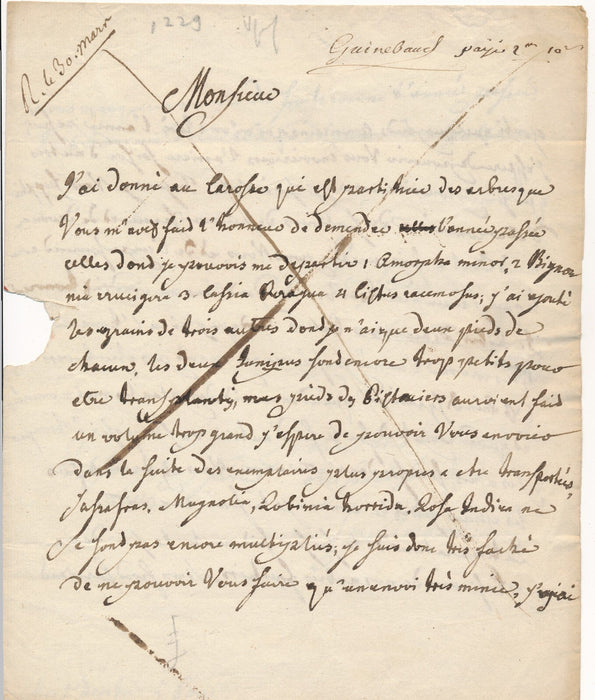 R. le 30. mars
1229
Guinebaud payé 2
Monsieur
J'ai donné au Carosse qui est parti hier des arbres que
Vous m'aves faid l'honneur de demender l'année passée
celles dond je pouvois me departir 1 Amorpha minor, 2 Bigno
nia crucigera 3 Cassia 4 Cistus racemosus; j'ai ajouté
les grains de trois autres dond je n'ai que deux pieds de
chacun, les deux Junipus sond encore trop petits pour
etre transplantés, mes pieds de Pistaciers auroient faid
un volume trop grand j'espere de pouvoir Vous envoier
dans la suite des exemplaires plus propres a etre transportés,
Sasafras, Magnolia, Robinia horrida, Rosa Indica ne
se sond pas encore multipliés; je suis donc très faché
de ne pouvoir Vous faire qu'un envoi très mince,